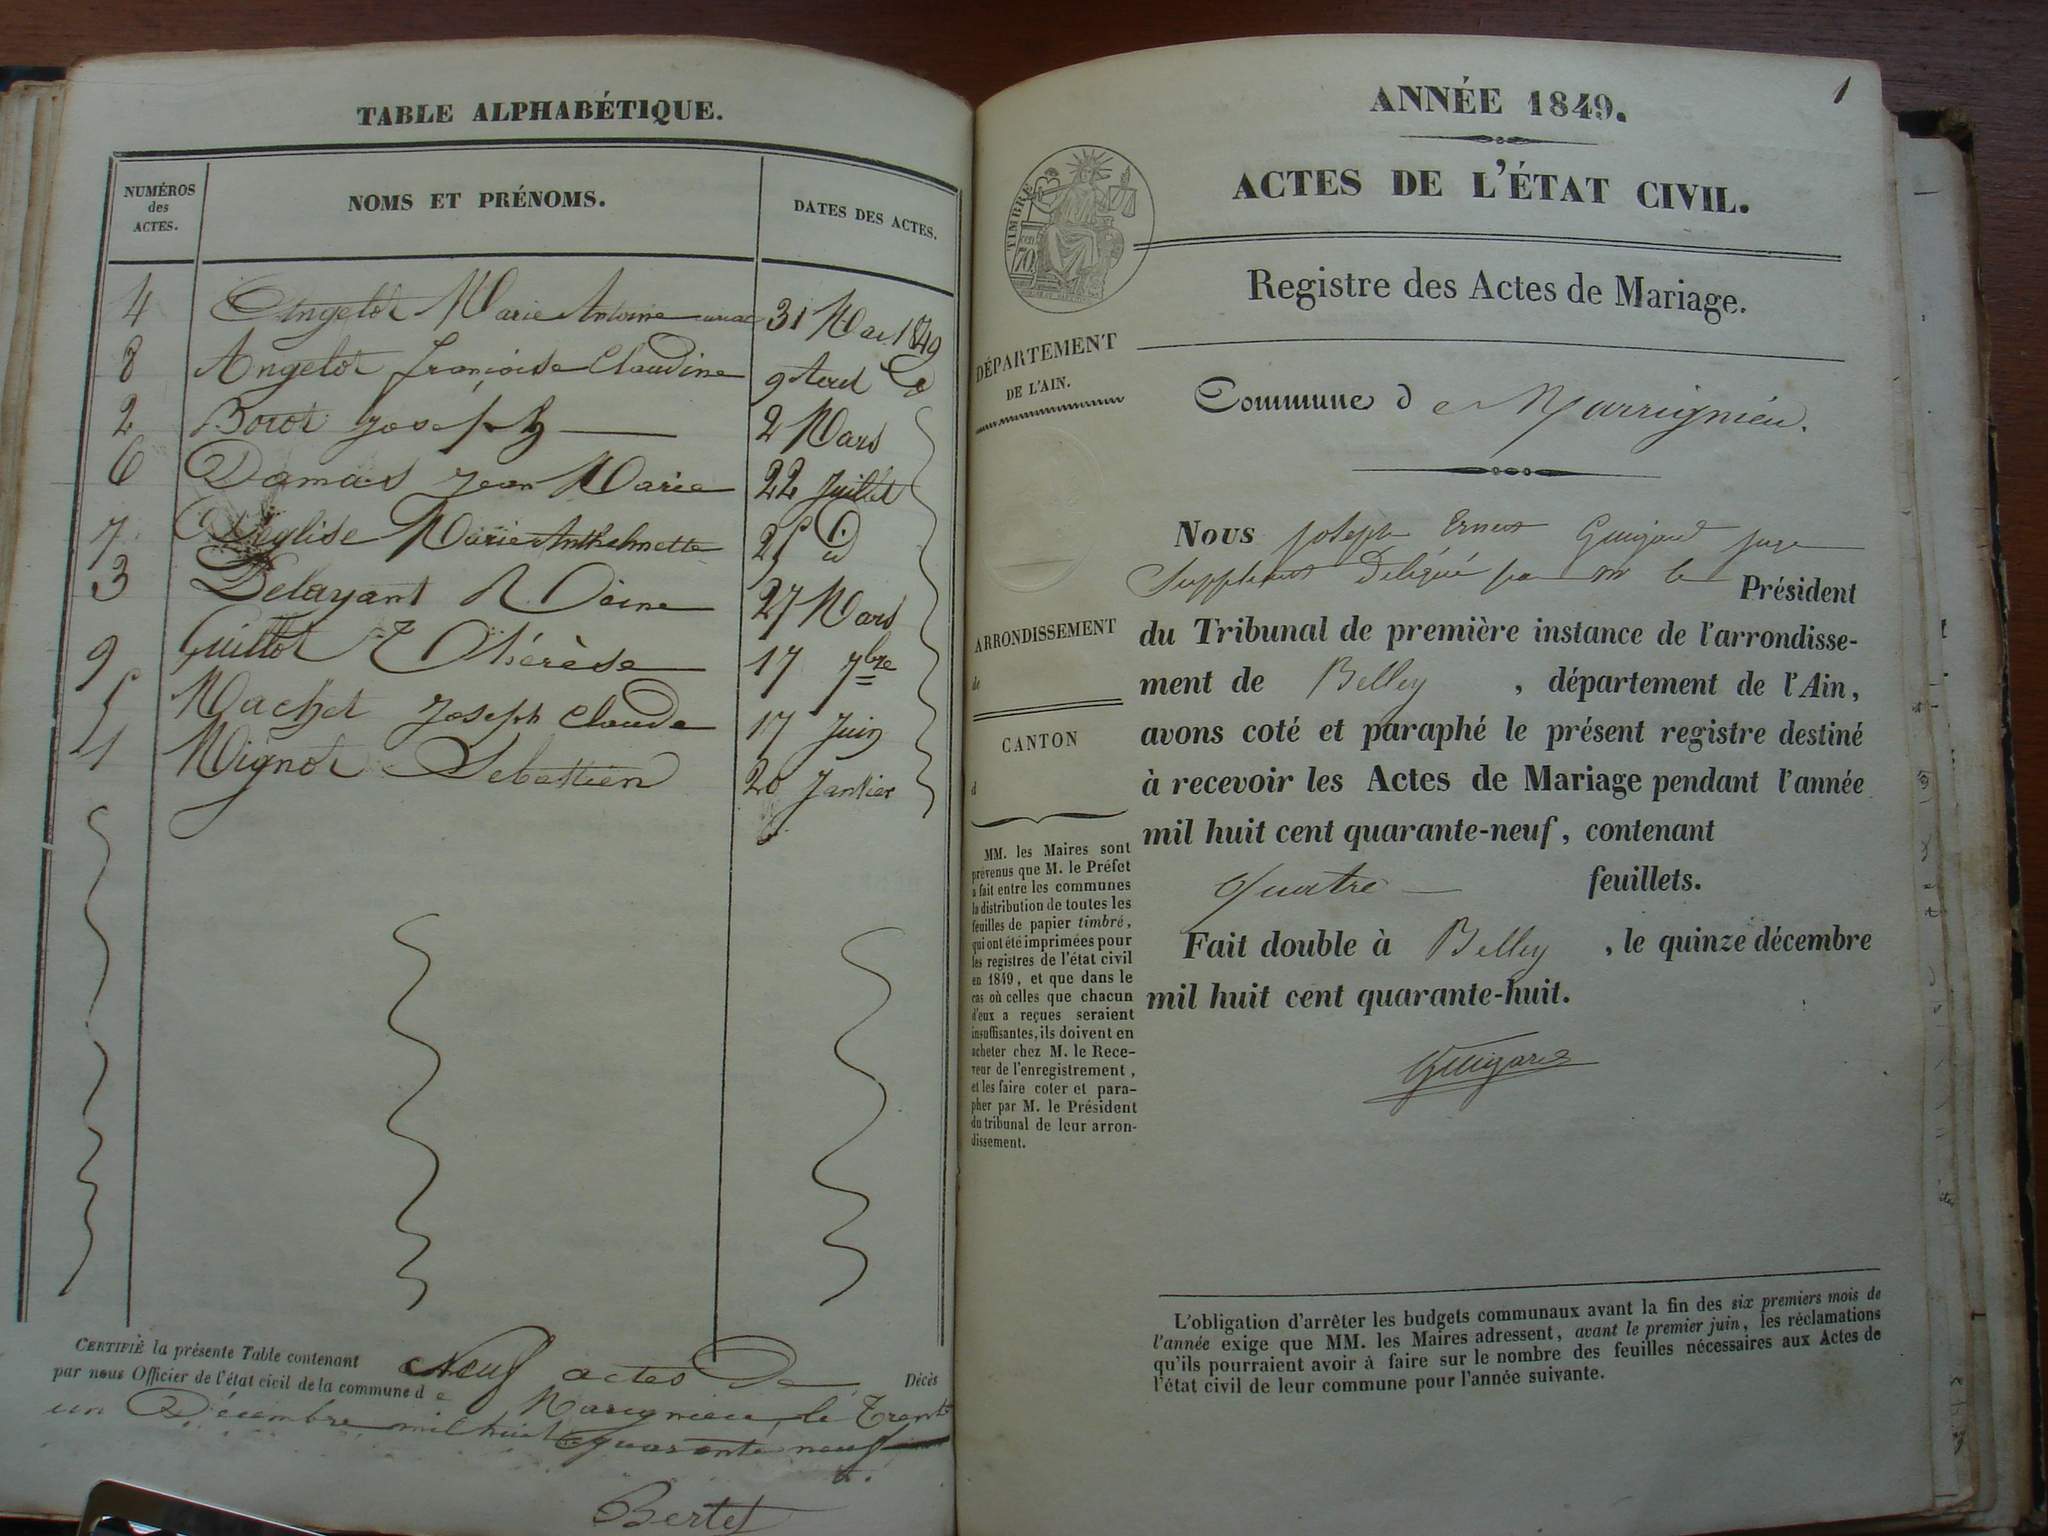 TABLE ALPHABÉTIQUE.
NUMÉROS
des
ACTES.
NOMS ET PRÉNOMS.
DATES DES ACTES.
4 Angelot Marie Antoine 31 Mars 1849
8 Angelot françoise Claudine 9 d
2 Borot Joseph 2 Mars
6 Damais Jean Marie 22 Juillet
7 Déglise Marie Anthelmette 25 d
3 Delayant 27 Mars
9 Guillot Thérèse 17 7bre
5 Machet Joseph Claude 17 Juin
1 Mignot Sebastien 20 Janvier
CERTIFIÉ la présente Table contenant Neuf actes De Décès
par nous Officier de l'état civil de la commune d e Marignieu, le Trente
un Décembre mil huit quarante neuf
Bertet
1
ANNÉE 1849.
ACTES DE L'ÉTAT CIVIL.
TIMBRE
70
Registre des Actes de Mariage.
DÉPARTEMENT
DE L'AIN.
Commune d e Marrignieu.
Nous Joseph Ernest Guigard juge
Suppléant Délégué par Mr le Président
du Tribunal de première instance de l'arrondisse-
ment de Belley , département de l'Ain,
avons coté et paraphé le présent registre destiné
à recevoir les Actes de Mariage pendant l'année
mil huit cent quarante-neuf, contenant
Quatre feuillets.
Fait double à Belley , le quinze décembre
mil huit cent quarante-huit.
Guigard
ARRONDISSEMENT
de
CANTON
d
MM. les Maires sont
prévenus que M. le Préfet
a fait entre les communes
la distribution de toutes les
feuilles de papier timbré,
qui ont été imprimées pour
les registres de l'état civil
en 1849, et que dans le
cas où celles que chacun
d'eux a reçues seraient
insuffisantes, ils doivent en
acheter chez M. le Rece-
veur de l'enregistrement,
et les faire coter et para-
pher par M. le Président
du tribunal de leur arron-
dissement.
L'obligation d'arrêter les budgets communaux avant la fin des six premiers mois de
l'année exige que MM. les Maires adressent, avant le premier juin, les réclamations
qu'ils pourraient avoir à faire sur le nombre des feuilles nécessaires aux Actes de
l'état civil de leur commune pour l'année suivante.